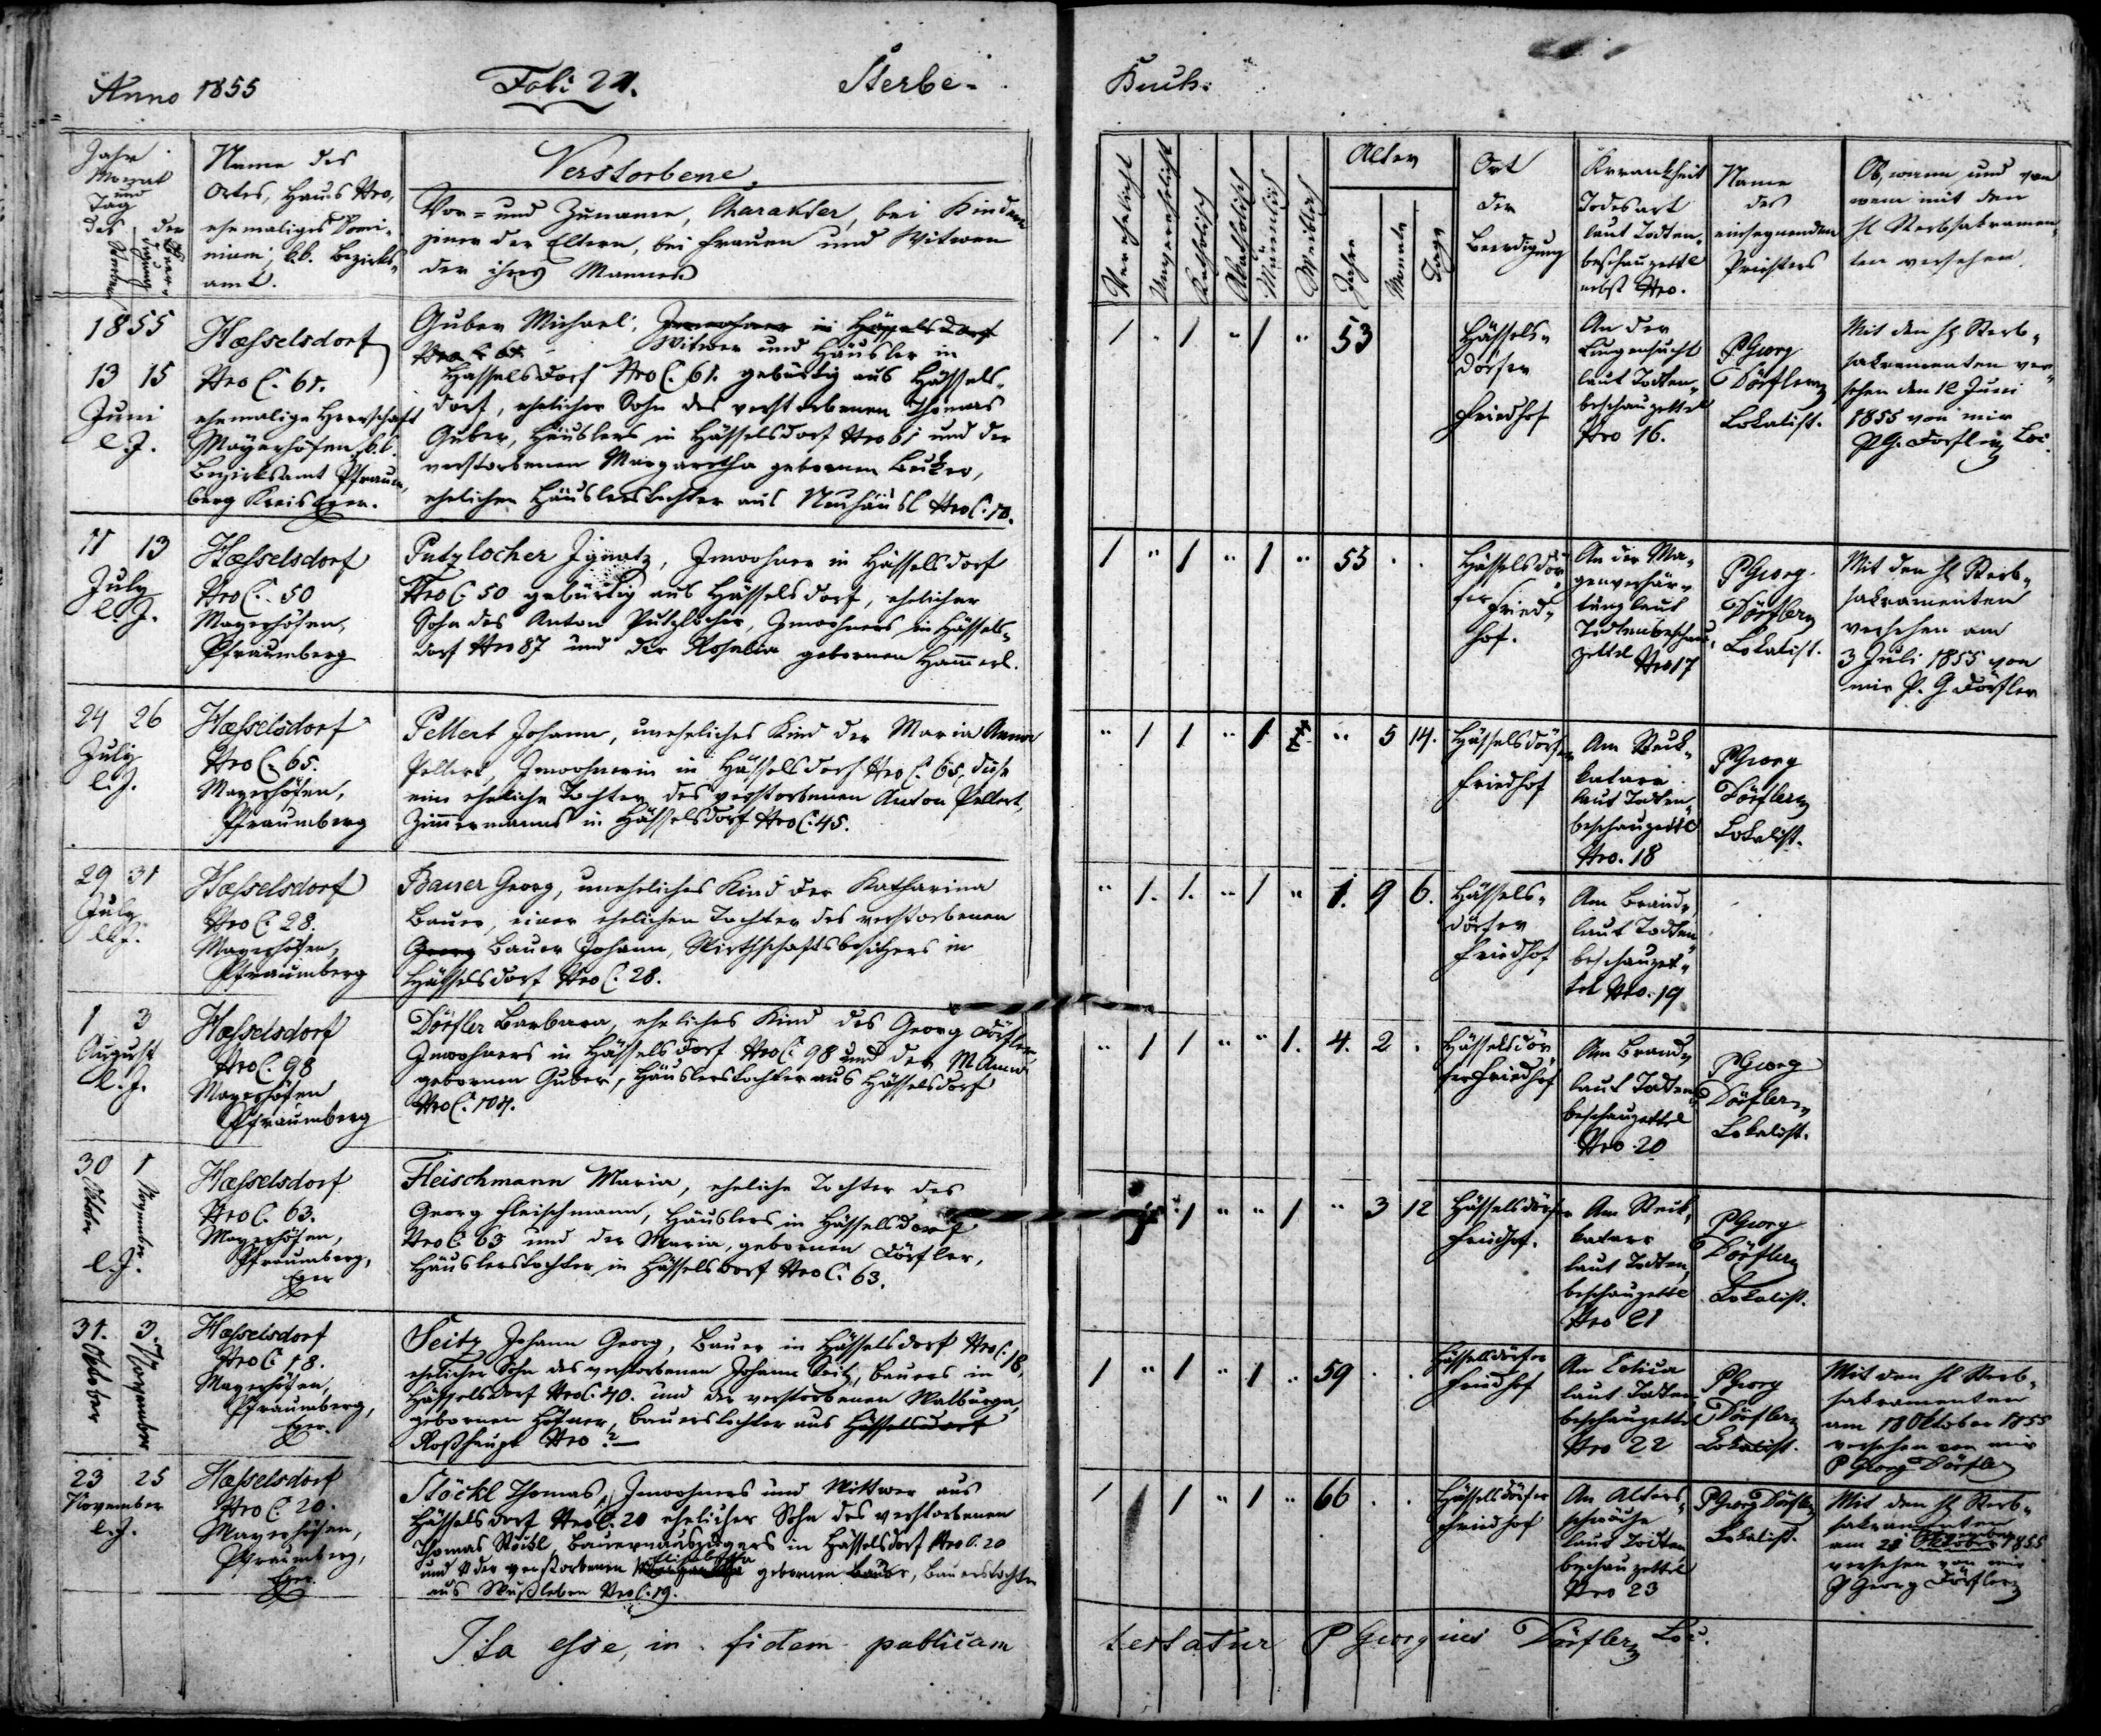 Anno 1855
Foli: 21.
Sterbe-
Buch.
Jahr
Monat
und
Tag
des der
Sterbens
Name des
Ortes, Haus Nro,
ehemaliges Domi-
nium, kk. Bezirks-
amt.
Verstorbene
Vor- und Zuname, Charakter, bei Kindern
jener der Eltern, bei Frauen und Witwen
der ihres Mannes
Verehelicht
Unverehelicht
Katholisch
Akatholisch
Männlich
Weiblich
Alter
Jahre
Monate
Tage
Ort
der
Beerdigung
Krankheit
Todesart
laut Todten-
beschauzettl
nebst Nro.
Name
des
einsegnenden
Priesters
Ob, wann und von
wem mit den
hl Sterbsakramen-
ten versehen.
1855
13 15
Juni
l. J.
Hæsselsdorf
Nro C. 61.
ehemalige Herrschaft
Mayerhöfen, k.k.
Bezirksamt Pfraum-
berg Kreis Eger.
Guber Michael, Inwohner in Hässelsdorf
Nro C 61. Witwer und Häusler in
Hässelsdorf Nro C. 61. gebürtig aus Hässels-
dorf, ehelicher Sohn des verstorbenen Thomas
Guber, Häuslers in Hässelsdorf Nro 61 und der
verstorbenen Margaretha gebornen
ehelichen Häuslerstochter aus Neuhäusl Nro C. 10.
1 " 1 " 1 " 53
Hässels-
dorfer
Friedhof
An der
Lungensucht
laut Todten-
beschauzettel
Nro 16.
P Georg
Dörfler
Lokalist.
Mit den hl Sterb-
sakramenten ver-
sehen den 12 Juni
1855 von mir
P.G. Dörfler Loc.
11 13
July
l. J.
Hæsselsdorf
Nro C. 50
Mayerhöfen,
Pfraumberg
Putzlocher Ignatz, Inwohner in Hässelsdorf
Nro C. 50 gebürtig aus Hässelsdorf, ehelicher
Sohn des Anton Putzlocher, Inwohners in Hässels-
dorf Nro 87 und der Rosalia gebornen Hammerl.
1 " 1 " 1 " 55 . .
Hässelsdor-
fer Fried-
hof.
An der Ma-
genverhär-
tung laut
Todtenbeschau-
zettel Nro 17
P Georg
Dörfler
Lokalist.
Mit den hl Sterb-
sakramenten
versehen am
3 Juli 1855 von
mir P. G Dörfler
24 26
July
l. J.
Hæsselsdorf
Nro C. 65.
Mayerhöfen,
Pfraumberg
Pellert Johann, uneheliches Kind der Maria Anna
Pellert, Inwohnerin in Hässelsdorf Nro C. 65, diese
eine eheliche Tochter des verstorbenen Anton Pellert,
Zimmermanns in Hässelsdorf Nro C. 45.
" 1 1 " 1 " 5 14.
Hässelsdörfer
Friedhof
Am Stick-
katarr
laut Todten-
beschauzettl
Nro. 18
P Georg
Dörfler
Lokalist.
29 31
July
l. J.
Hæsselsdorf
Nro C. 28.
Mayerhöfen,
Pfraumberg
Bauer Georg, uneheliches Kind der Katharina
Bauer, einer ehelichen Tochter des verstorbenen
Georg Bauer Johann, Wirthschaftsbesitzers in
Hässelsdorf Nro C. 28.
" 1. 1. " 1 " 1. 9 6.
Hässels-
dörfer
Friedhof
Am Brand,
laut Todten-
beschauzet-
tel Nro. 19
1 3
August
l. J.
Hæsselsdorf
Nro C. 98
Mayerhöfen
Pfraumberg
Dörfler Barbara, eheliches Kind des Georg Dörfler,
Inwohners in Hässelsdorf Nro C. 98 und der M Anna
gebornen Guber, Häuslerstochter aus Hässelsdorf
Nro C. 104.
" 1 1 " " 1. 4. 2 .
Hässelsdör-
fer Friedhof
Am Brand,
laut Todten-
beschauzettel
Nro 20
P Georg
Dörfler
Lokalist.
30 1
Oktober
November
l. J.
Hæsselsdorf
Nro C. 63.
Mayerhöfen,
Pfraumberg,
Eger
Fleischmann Maria, eheliche Tochter des
Georg Fleischmann, Häuslers in Hässelsdorf
Nro C. 63 und der Maria, gebornen Dörfler,
Häuslerstochter in Hässelsdorf Nro C. 63.
1 1 " " 1 " 3 12
Hässelsdörfer
Friedhof.
Am Stick-
katarr
laut Todten-
beschauzettl
Nro 21
P Georg
Dörfler
Lokalist.
31. 3.
Oktober
November
Hæsselsdorf
Nro C. 18.
Mayerhöfen,
Pfraumberg,
Eger.
Seitz Johann Georg, Bauer in Hässelsdorf Nro C. 18,
ehelicher Sohn des verstorbenen Johann Seitz, Bauers in
Hässelsdorf Nro C. 40. und der verstorbenen Walburga,
gebornen Höfner, Bauerstochter aus Hässelsdorf
Roßhaupt Nro ?
1 " 1 " 1 " 59 . .
Hässelsdörfer
Friedhof
An Colica
laut Todten-
beschauzettel
Nro 22
P Georg
Dörfler
Lokalist.
Mit den hl Sterb-
sakramenten
am 18 Oktober 1855
versehen von mir
P Georg Dörfler
23 25
November
l. J.
Hæsselsdorf
Nro C. 20.
Mayerhöfen,
Pfraumberg,
Eger.
Stöckl Thomas, Inwohners und Wittwer aus
Hässelsdorf Nro C. 20 ehelicher Sohn des verstorbenen
Thomas Stöckl, Bauernauszügers in Hässelsdorf Nro C. 20
und der verstorbenen Elisabetha gebornen Bauer, Bauerstochter
aus Wußleben Nro C. 19.
1 1 " 1 " 66 . .
Hässelsdörfer
Friedhof
An Alters-
schwäche
laut Todten
beschauzettel
Nro 23
P Georg Dörfler
Lokalist.
Mit den hl Sterb-
sakramenten
am 28 Oktober November 1855
versehen von mir
P Georg Dörfler
Ita esse, in fidem publicam testatur P Georgius Dörfler Loc.